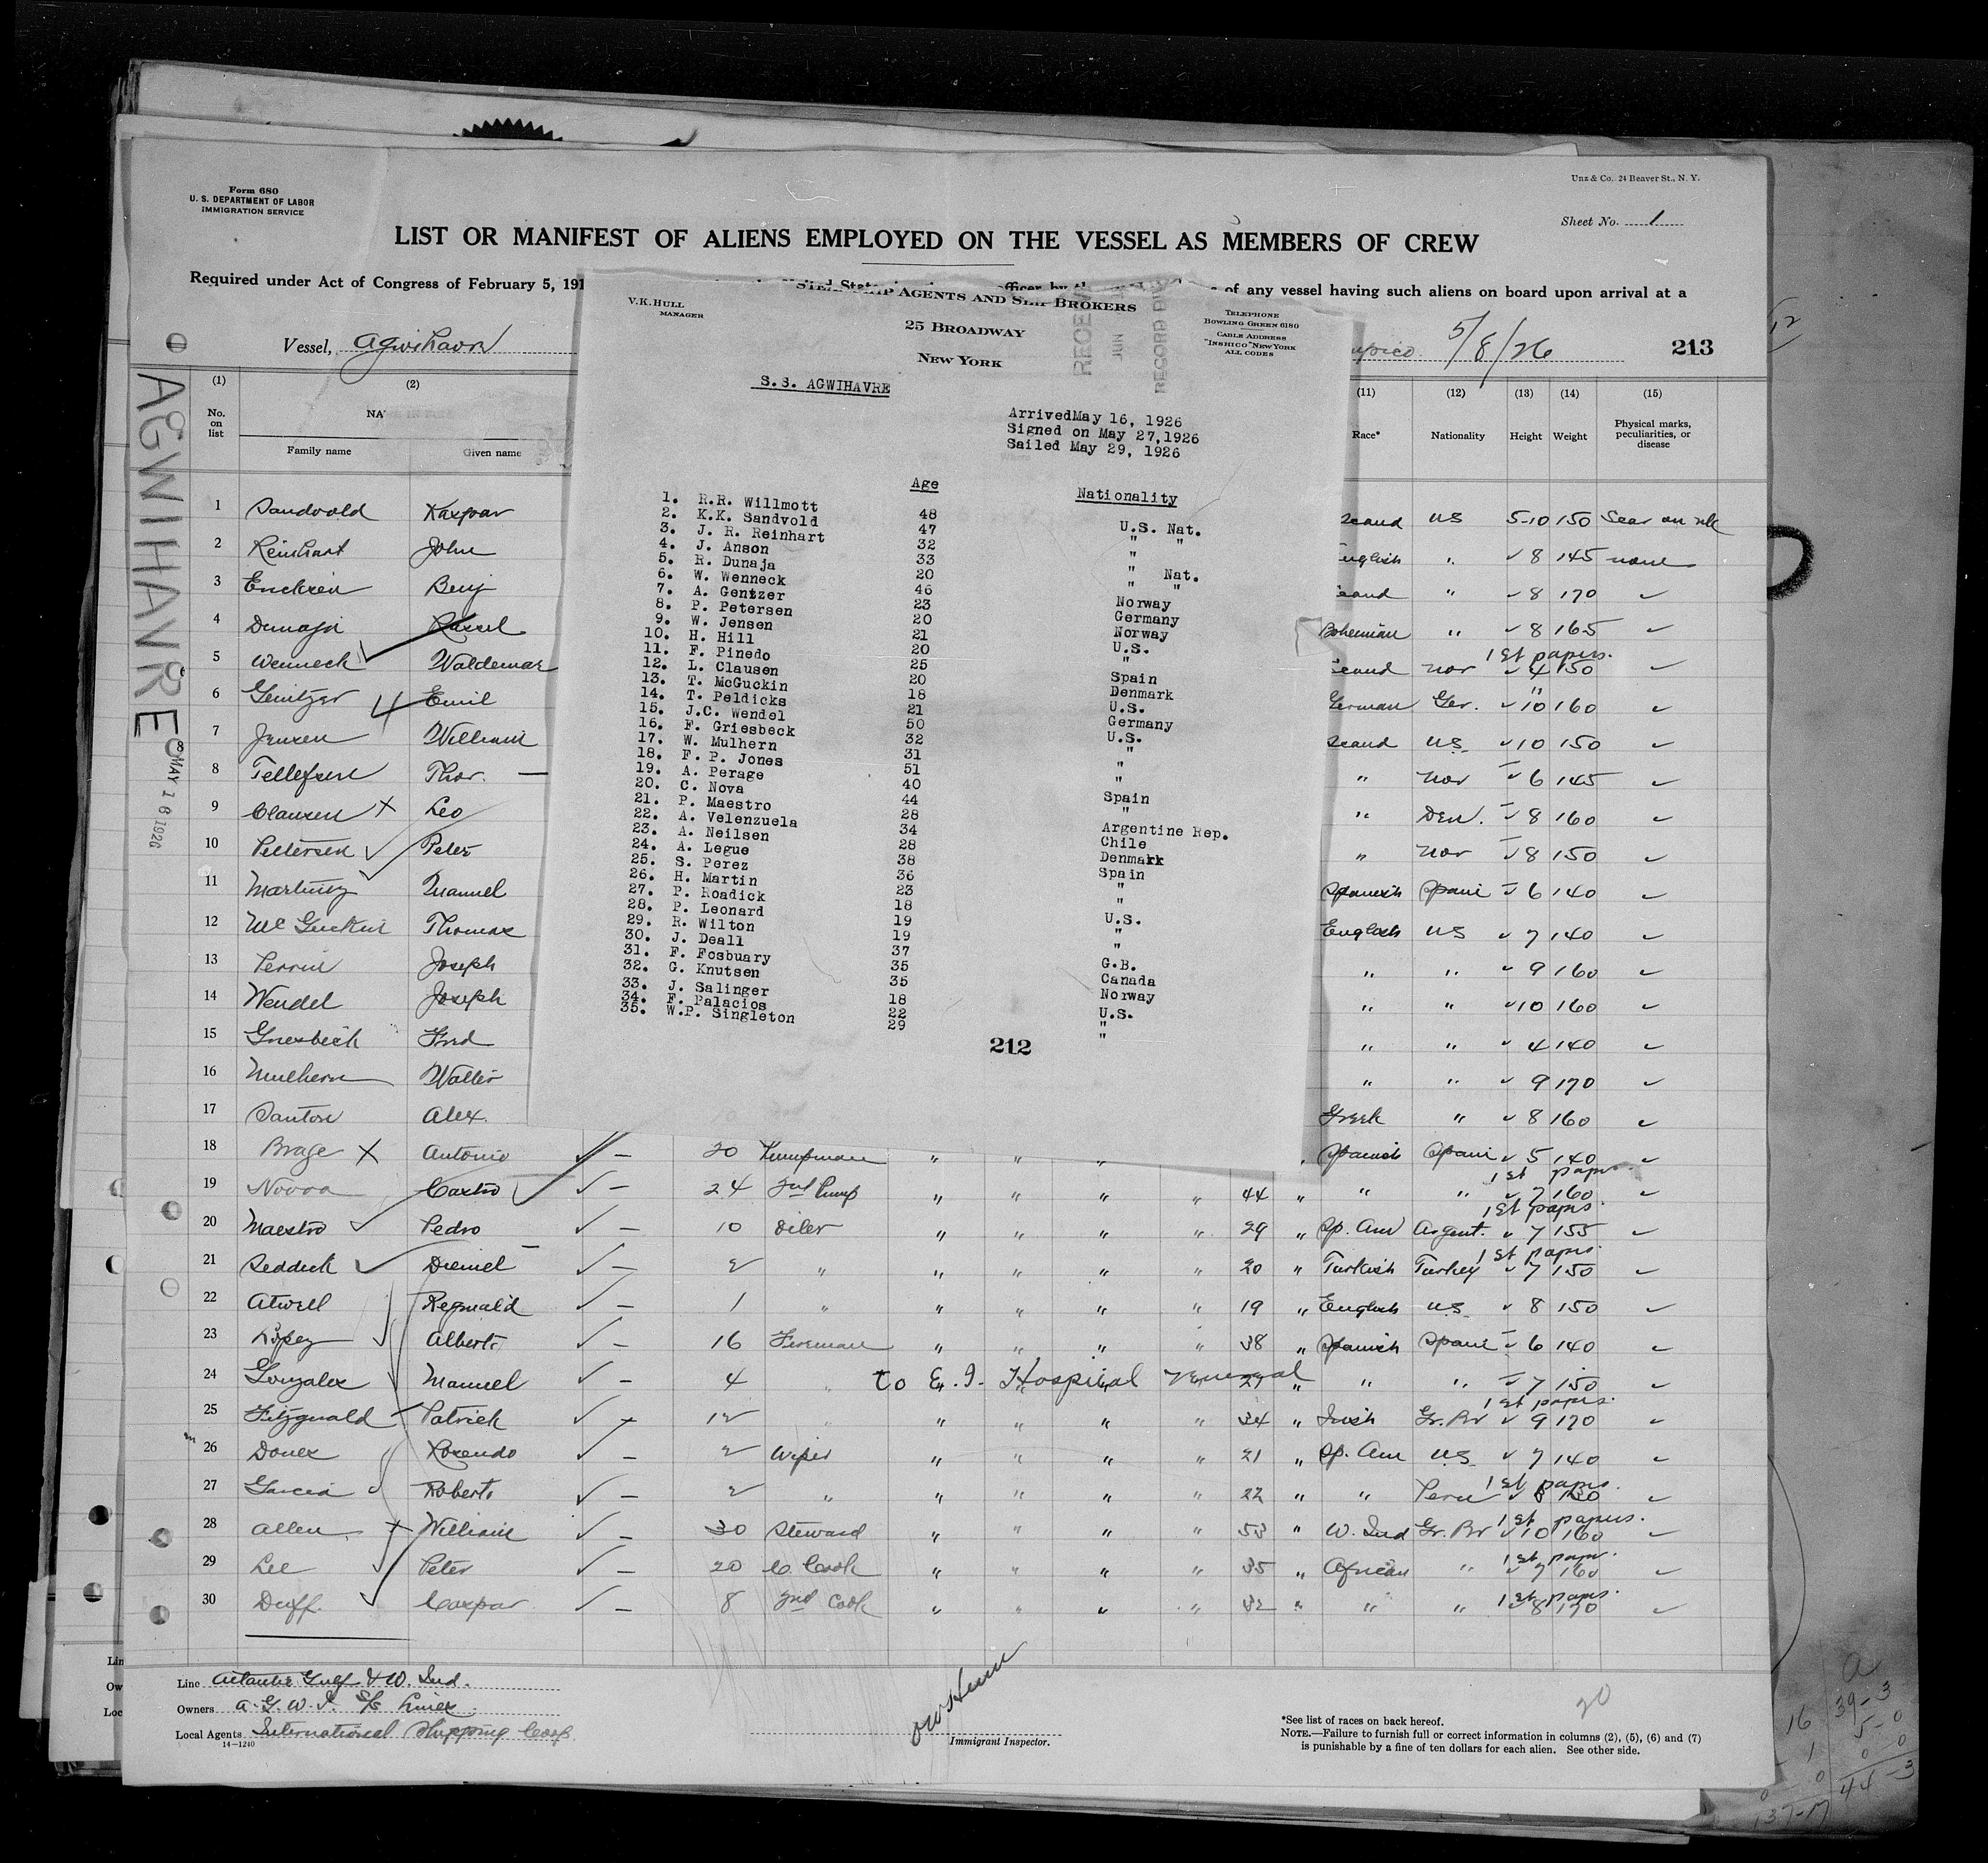 Form 680
U. S. DEPARTMENT OF LABOR
IMMIGRATION SERVICE
Unz & Co., 24 Beaver St., N. Y.
Sheet No. 1
LIST OR MANIFEST OF ALIENS EMPLOYED ON THE VESSEL AS MEMBERS OF CREW
Required under Act of Congress of February 5, 191
of any vessel having such aliens on board upon arrival at a
Vessel, Agwihavre
5/8/26
213
AGWIHAVRE
MAY 16 1926
(1) (2) (11) (12) (13) (14) (15)
No. on list
Family name Given name
Race* Nationality Height Weight Physical marks, peculiarities, or disease
V. K. HULL
MANAGER
STEAMSHIP AGENTS AND SHIP BROKERS
25 BROADWAY
NEW YORK
TELEPHONE
BOWLING GREEN 6180
CABLE ADDRESS
"INSHICO" NEW YORK
ALL CODES
S.S. AGWIHAVRE
Arrived May 16, 1926
Signed on May 27,1926
Sailed May 29, 1926
Age Nationality
1. R.R. Willmott 48 U.S. Nat.
2. K.K. Sandvold 47 " "
3. J. R. Reinhart 32 "
4. J. Anson 33 " Nat.
5. R. Dunaja 20 " "
6. W. Wenneck 46 Norway
7. A. Gentzer 23 Germany
8. P. Petersen 20 Norway
9. W. Jensen 21 U.S.
10. H. Hill 20 "
11. F. Pinedo 25 Spain
12. L. Clausen 20 Denmark
13. T. McGuckin 18 U.S.
14. T. Peldicks 21 Germany
15. J.C. Wendel 50 U.S.
16. F. Griesbeck 32 "
17. W. Mulhern 31 "
18. F. P. Jones 51 "
19. A. Perage 40 Spain
20. C. Nova 44 "
21. P. Maestro 28 Argentine Rep.
22. A. Velenzuela 34 Chile
23. A. Neilsen 28 Denmark
24. A. Legue 38 Spain
25. S. Perez 36 "
26. H. Martin 23 "
27. P. Roadick 18 U.S.
28. P. Leonard 19 "
29. R. Wilton 19 "
30. J. Deall 37 G.B.
31. F. Fosbuary 35 Canada
32. G. Knutsen 35 Norway
33. J. Salinger 18 U.S.
34. F. Palacios 22 "
35. W.P. Singleton 29 "
212
1 Sandvold Kaspar Scand US 5-10 150
2 Reinhart John English " 8 145 none
3 Benj Scand " 8 170
4 Russel Bohemian " 8 165
1st papers.
5 Wenneck Waldemar Scand Nor 4 150
6 Gentzer Emil German Ger. 10 160
7 Jensen William Scand US 10 150
8 Tellefsen Thor. " Nor 6 145
9 Clausen Leo " Den. 8 160
10 Pettersen Peter " Nor 8 150
11 Martinez Manuel Spanish Spain 6 140
12 McGuckin Thomas English US 7 140
13 Perrin Joseph " " 9 160
14 Wendel Joseph " " 10 160
15 Griesbeck Fred " " 4 140
16 Mulhern Walter " " 9 170
17 Santon Alex. Greek " 8 160
18 Brage Antonio 20 Pumpman " " " Spanish Spain 5 140
1st papers.
19 Novoa Castro 24 2nd Pump " " " " 44 " " " 7 160
1st papers.
20 Maestro Pedro 10 Oiler " " " " 29 " Sp. Am Argent. 7 155
1st papers.
21 Seddick Diemel 2 " " " " " 20 " Turkish Turkey 7 150
22 Atwell Reginald 1 " " " " " 19 " English US 8 150
23 Lopez Alberto 16 Fireman " " " " 38 " Spanish Spain 6 140
24 Gonzalex Manuel 4 " to E. I. Hospital Venereal 27 " " " 7 150
1st papers.
25 Fitzgerald Patrick 12 " " " " " 34 " Irish Gr. Br 9 170
26 Rosendo 2 Wiper " " " " 21 " Sp. Am US 7 140
1st papers.
27 Garcia Roberto 2 " " " " " 22 " " Peru 8 130
1st papers.
28 Allen William 30 Steward " " " " 53 " W. Ind Gr. Br 10 160
1st papers.
29 Lee Peter 20 C. Cook " " " " 35 " African " 7 160
1st papers.
30 Duff. Caspar 8 2nd Cook " " " " 32 " " " 8 170
Line Atlantic Gulf & W. Ind.
Owners A. G. W. I. S/S Lines
Local Agents International Shipping Corp.
14—1240
Immigrant Inspector.
20
*See list of races on back hereof.
NOTE.—Failure to furnish full or correct information in columns (2), (5), (6) and (7)
is punishable by a fine of ten dollars for each alien. See other side.
16 39-3
1 5-0
0 0 0
137-17 44-3